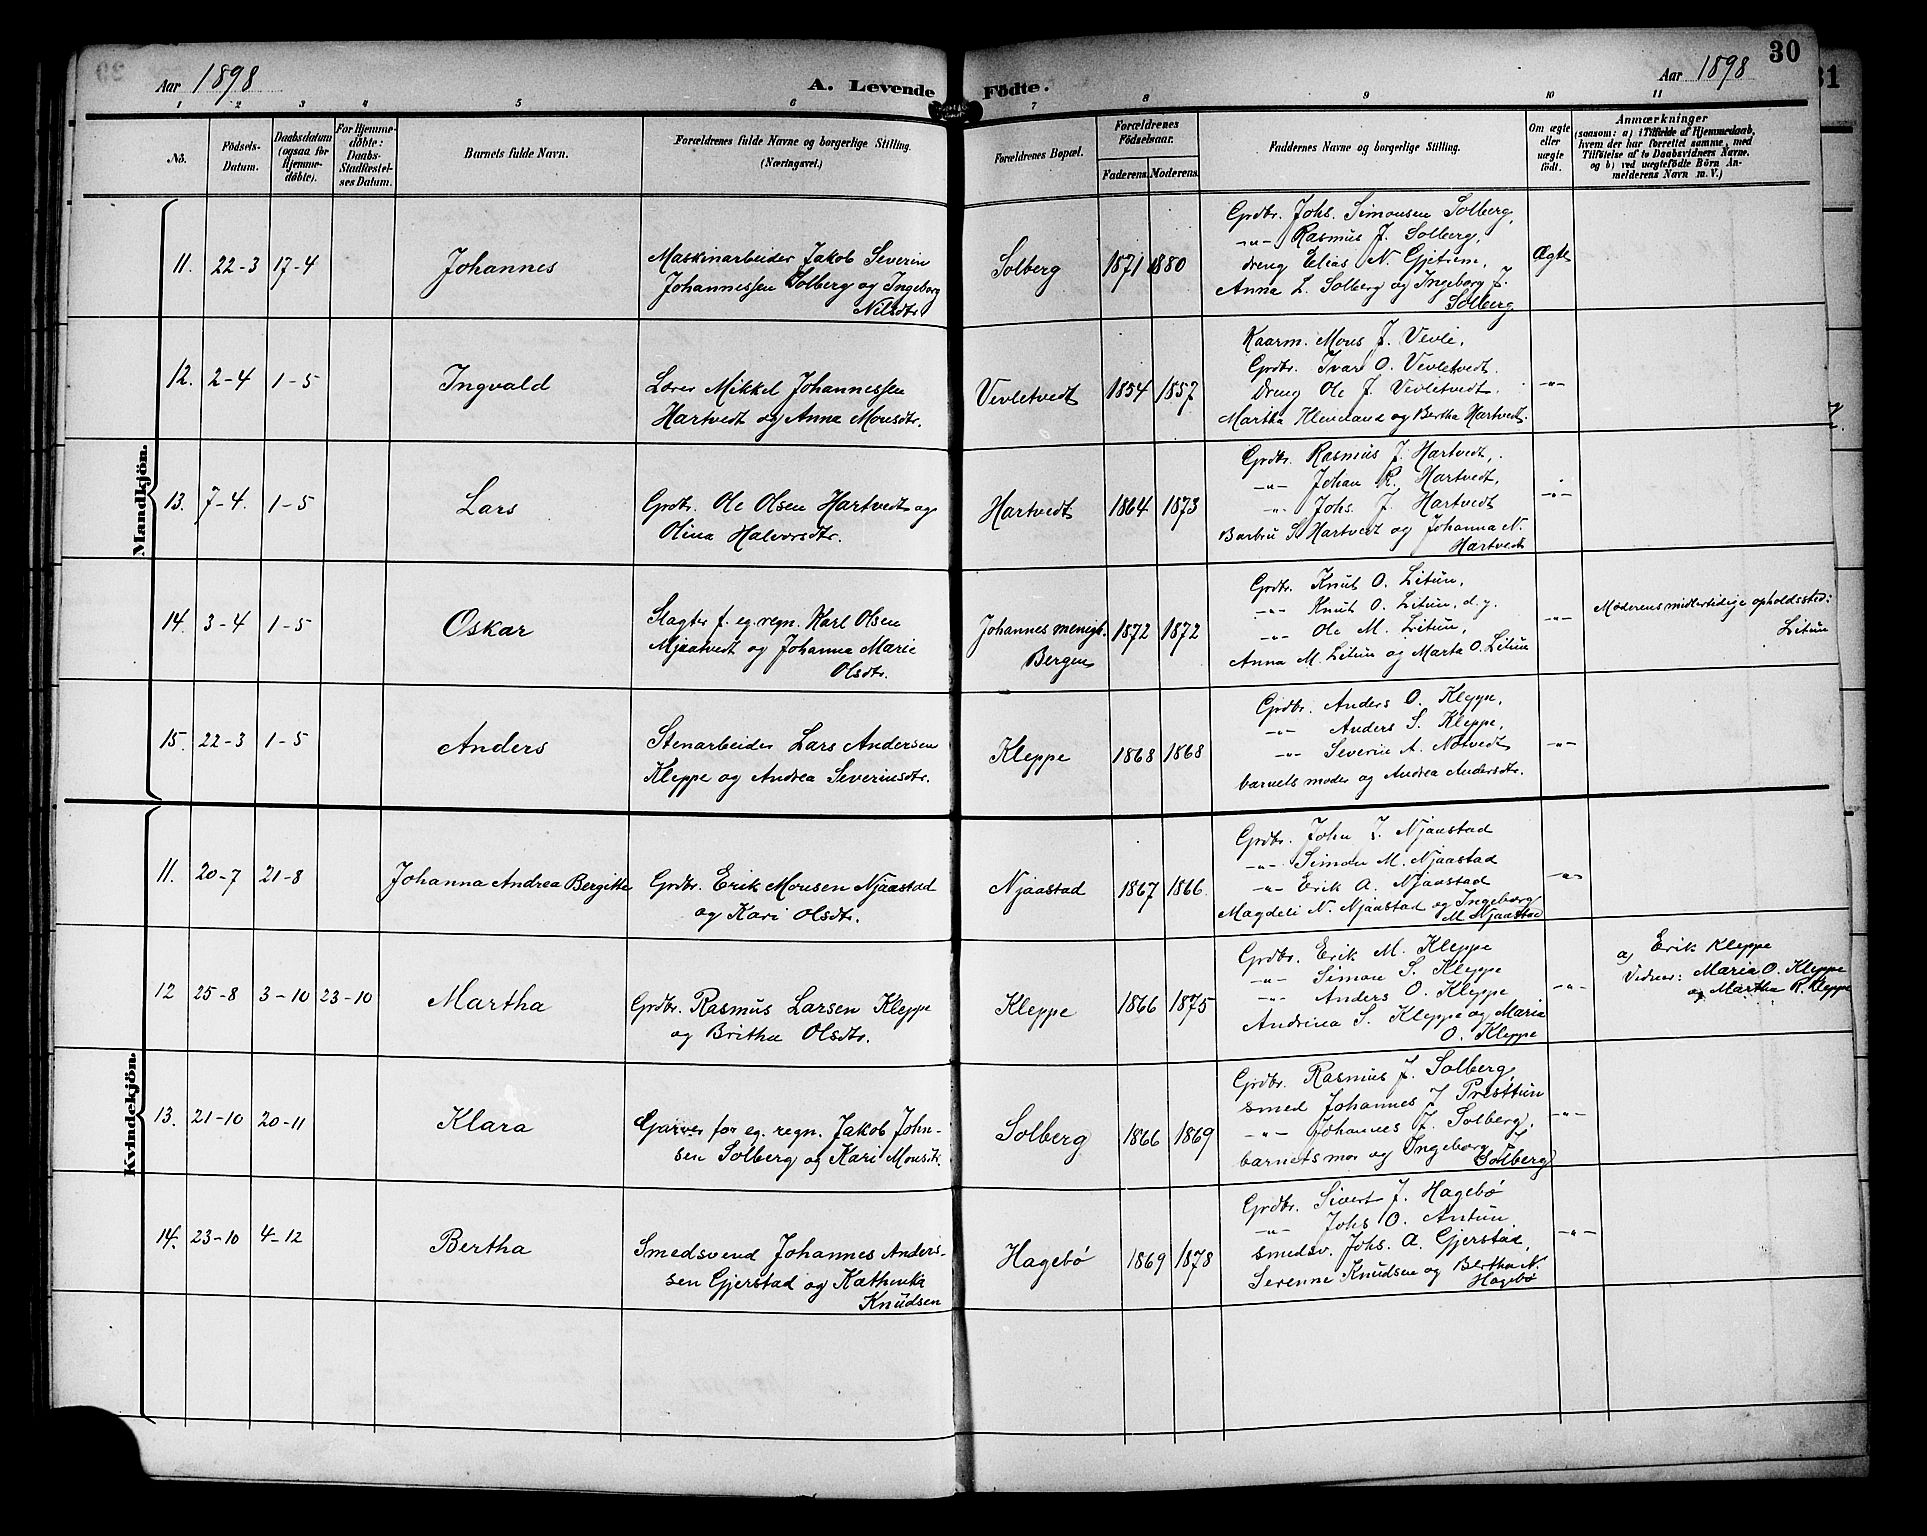 30
31
Aar 1898
A. Levende Födte.
Aar 1898
1 2 3 4 5 6 7 8 9 10 11
No.
Födsels-
Datum.
Daabsdatum
(ogsaa for
Hjemme-
döbte).
For Hjemme-
döbte:
Daabs-
Stadfæstel-
ses Datum.
Barnets fulde Navn.
Forældrenes fulde Navne og borgerlige Stilling.
(Næringsvei.)
Forældrenes Bopæl.
Forældrenes
Födselsaar.
Faderens. Moderens.
Faddernes Navne og borgerlige Stilling.
Om ægte
eller
uægte
födt.
Anmærkninger
(saasom: a) i Tilfælde af Hjemmedaab,
hvem der har forrettet samme, med
Tilföielse af to Daabsvidners Navne.
og b) ved uægtefödte Börn An-
melderens Navn m. V.)
Mandkjön.
11. 22-3 17-4
Johannes
Maskinarbeider Jakob Severin
Johannessen Solberg og Ingeborg
Nilsdtr
Solberg
1871 1880
Grdbr. Johs. Simonsen Solberg,
-"- Rasmus J. Solberg,
dreng Elias N. Gjetrem,
Anna L. Solberg og Ingeborg J.
Solberg
Ægte
12. 2-4 1-5
Ingvald
Lærer Mikkel Johannessen
Hartvedt og Anna Monsdtr.
Vevletvedt
1854 1857
Kaarm. Mons J. Vevle,
Grdbr. Ivar O. Vevletvedt.
Dreng Ole J. Vevletvedt.
Martha Kleveland og Bertha Hartvedt.
-"-
13. 7-4. 1-5
Lars
Grdbr. Ole Olsen Hartvedt og
Olina Halvorsdtr.
Hartvedt
1864 1873
Grdbr. Rasmus J. Hartvedt,
-"- Johan R. Hartvedt,
-"- Johs. J. Hartvedt
Barbru S. Hartvedt og Johanna N.
Hartvedt
-"-
14. 3-4 1-5
Oskar
Slagter f. eg. regn. Karl Olsen
Mjaatvedt og Johanna Marie
Olsdtr.
Johannes menigh.
Bergen
1872 1872
Grdbr. Knut O. Litun,
-"- Knut O. Litun, d.y.
-"- Ole M. Litun,
Anna M. Litun og Marta O. Litun
-"-
Moderens midlertidige opholdssted:
Litun
15. 22-3 1-5
Anders
Stenarbeider Lars Andersen
Kleppe og Andrea Severinsdtr.
Kleppe
1868 1868
Grdbr. Anders O. Kleppe,
-"- Anders S. Kleppe,
-"- Severin A. Notvedt
barnets moder og Andrea Andersdtr.
-"-
Kvindekjön.
11. 20-7 21-8
Johanna Andrea Bergitte
Grdbr. Erik Monsen Njaastad
og Kari Olsdtr.
Njaastad
1867 1866
Grdbr. John J. Njaastad
-"- Simon M. Njaastad
-"- Erik A. Njaastad
Magdeli N. Njaastad og Ingeborg
M. Njaastad
-"-
12 25-8 3-10 23-10
Martha
Grdbr. Rasmus Larsen Kleppe
og Britha Olsdtr.
Kleppe
1866 1875
Grdbr. Erik M. Kleppe
-"- Simon S. Kleppe
-"- Anders O. Kleppe
Andrina S. Kleppe og Maria
O. Kleppe
-"-
a) Erik Kleppe
Vidner: Maria O. Kleppe
og Martha R. Kleppe
13. 21-10 20-11
Klara
Garver for eg. regn. Jakob John-
sen Solberg og Kari Monsdtr.
Solberg
1866 1869
Grdbr. Rasmus J. Solberg,
smed Johannes J. Presttun
-"- Johannes J. Solberg,
barnets mor og Ingeborg J.
Solberg
-"-
14. 23-10 4-12
Bertha
Smedsvend Johannes Anders-
sen Gjerstad og Kathinka
Knudsen
Hagebø
1869 1878
Grdbr. Sivert J. Hagebø
-"- Johs O. Antun,
smedsv. Johs. A. Gjerstad,
Serenne Knudsen og Bertha N.
Hagebø
-"-